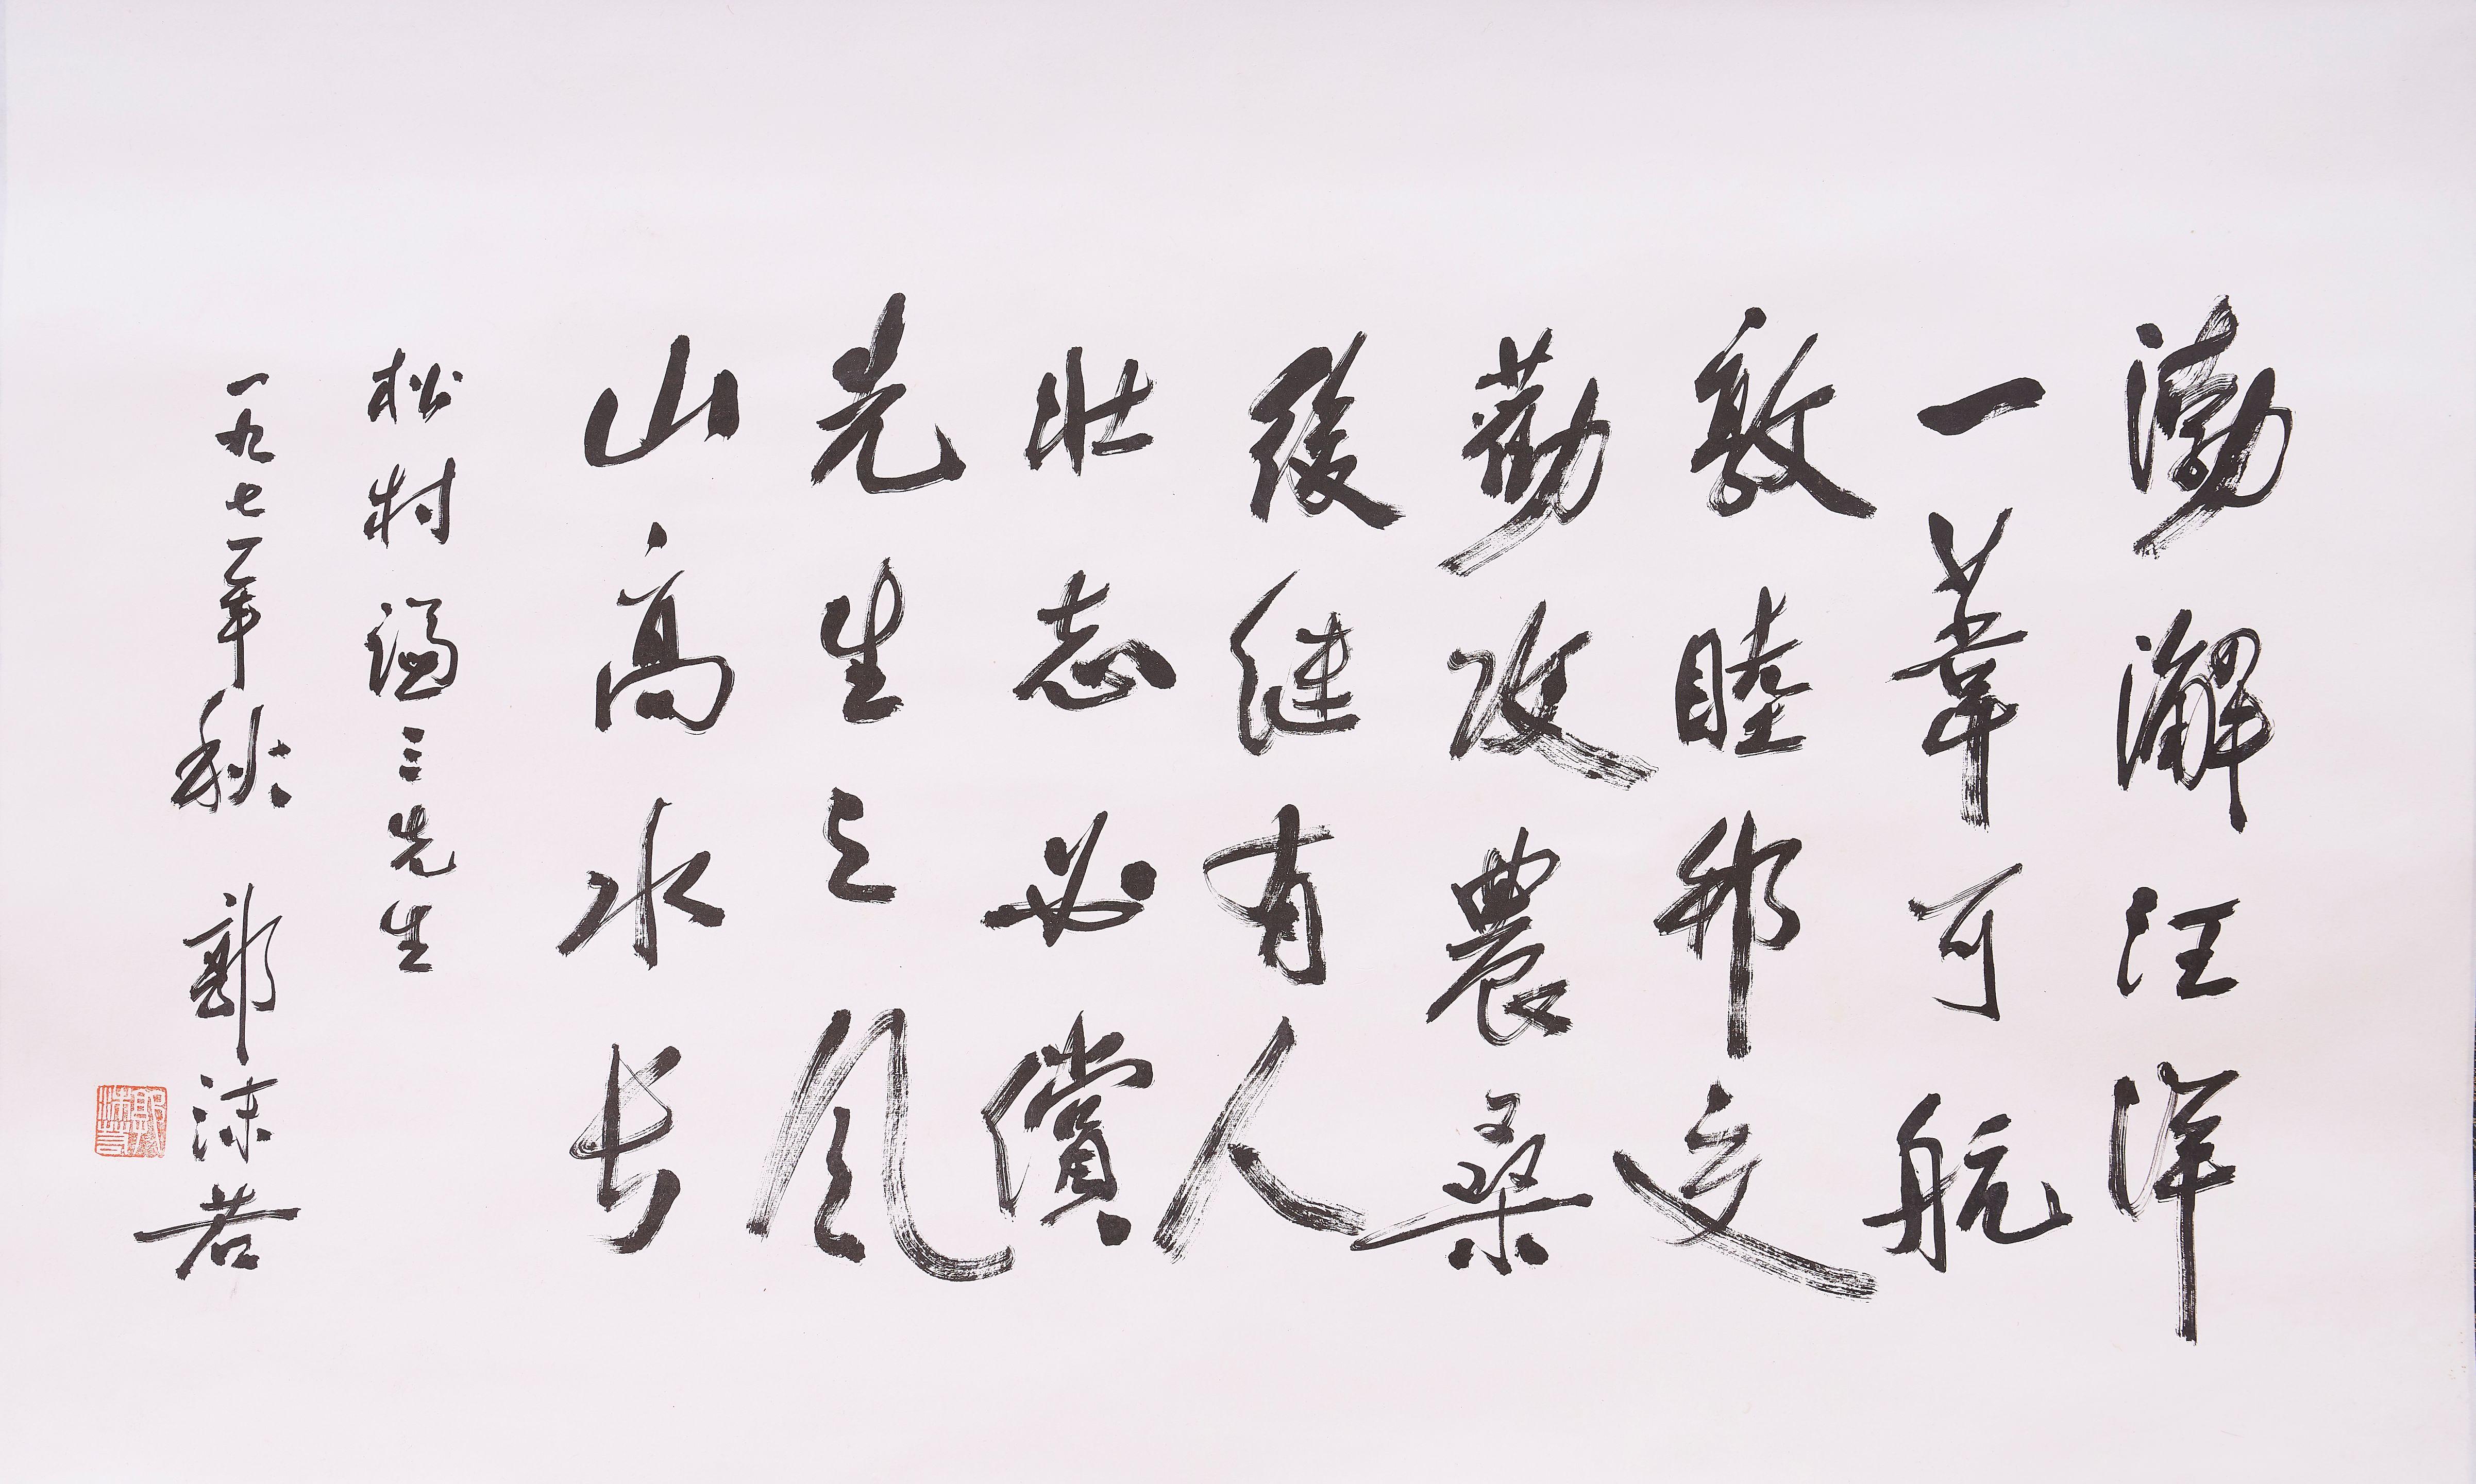 渤澥汪洋
一葦可航
敦睦邦交
勸攻農桑
後継有人
壯志必償
先生之風
山高水长
松村謙三先生
一九七一年秋 郭沫若
郭沫若